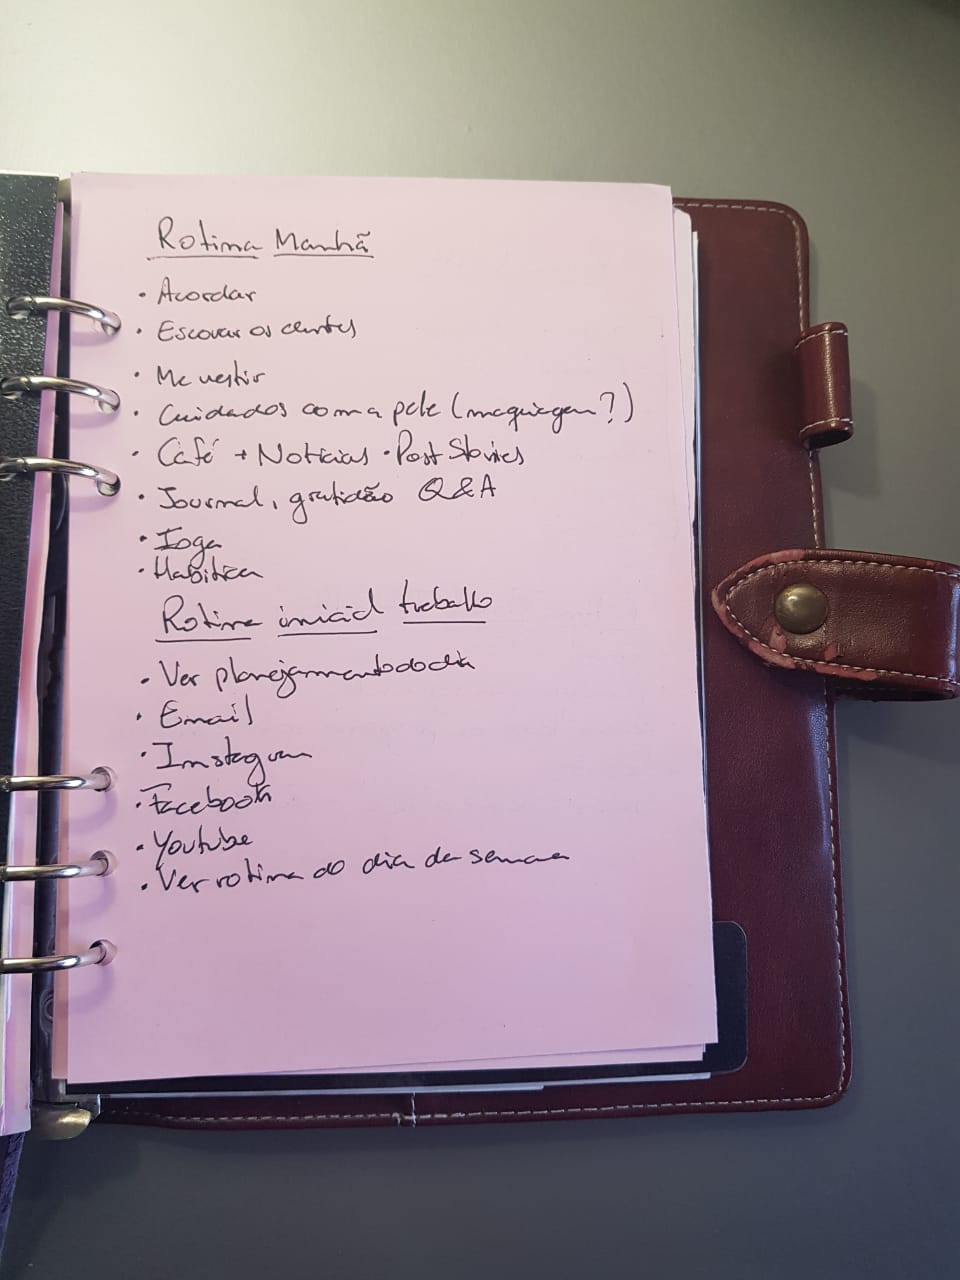 Rotina Manhã
• Acordar
• Escovar os dentes
• Me vestir
• Cuidados com a pele (maquiagem?)
• Café + Notícias • Post Stories
• Journal, gratidão Q&A
• Ioga
• Habitica
Rotina inicial trabalho
• Ver planejamento do dia
• Email
• Instagram
• Facebook
• Youtube
• Ver rotina do dia da semana